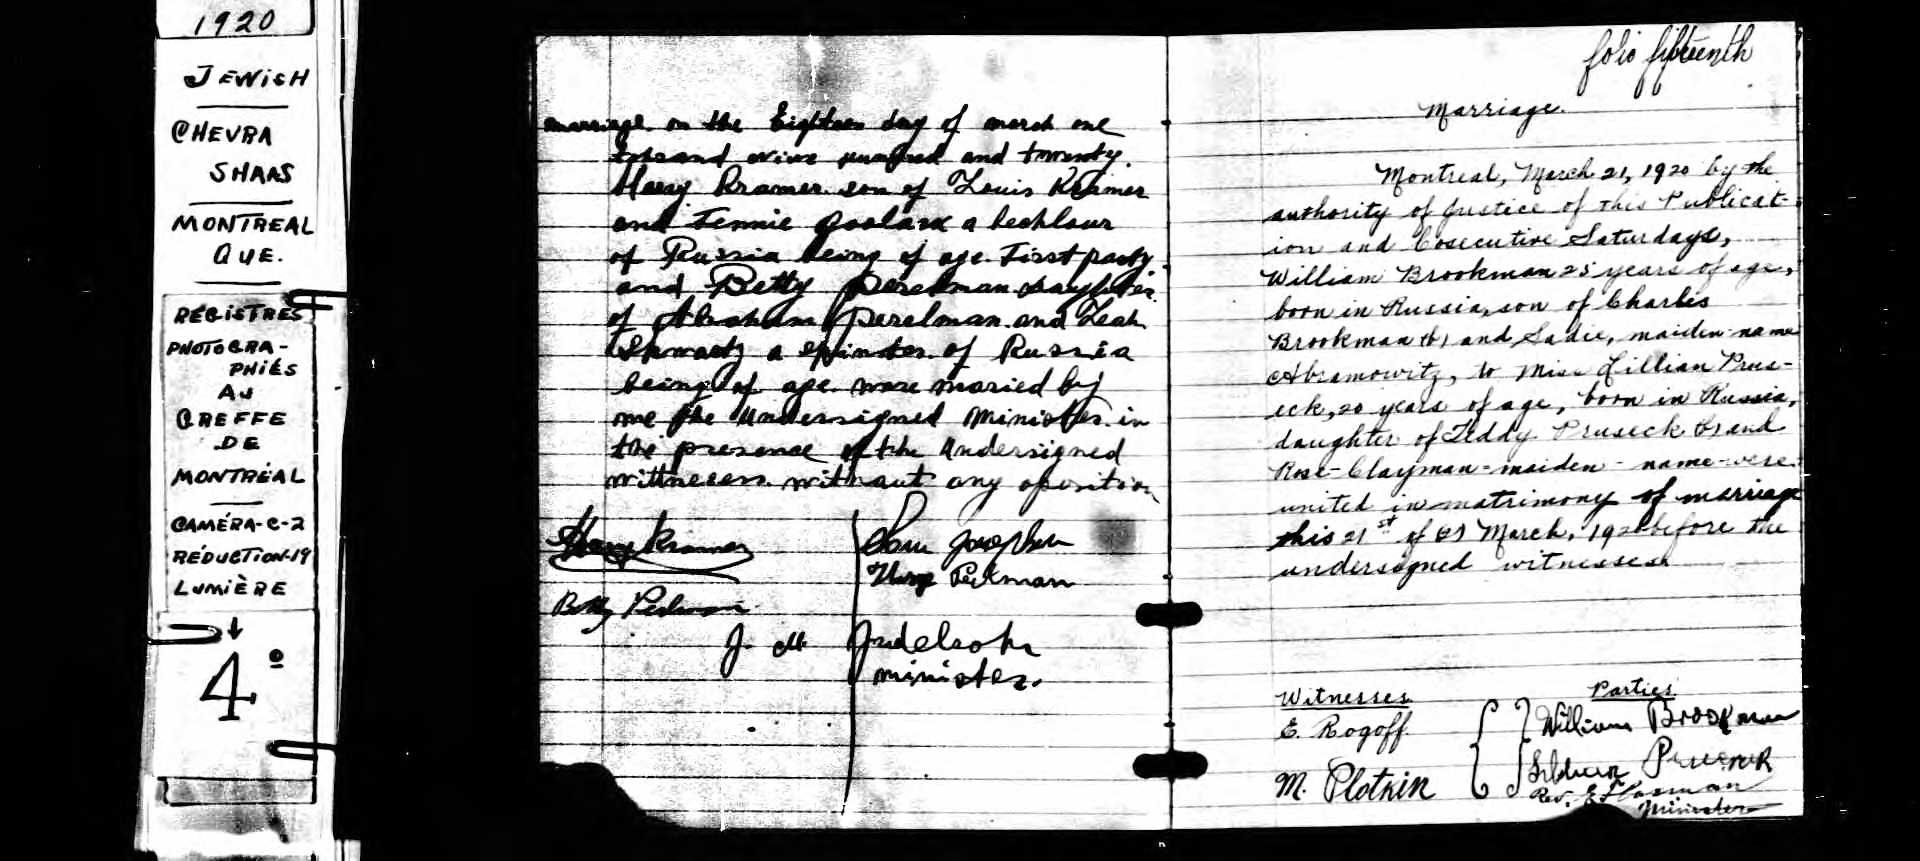 1920
JEWISH
CHEVRA
SHAAS
MONTREAL
QUE.
REGISTRES
PHOTOGRA-
PHIÉS
AU
GREFFE
DE
MONTRÉAL
CAMÉRA-C-2
RÉDUCTION-19
LUMIÈRE
4º
marriage on the Eighteen day of march one
and nine hundred and twenty.
Harry Kramer son of Louis Kramer
and Jennie a
of Russia being of age First party
and Betty Perelman daughter
of Abraham Perelman and Leah
a spinster of Russia
being of age were maried by
me the Undersigned Minister in
the presence of the Undersigned
wittnesess without any oposition
Harry Kramer
Betty
Perlman
J. M. Judelsohn
minister.
folio fifteenth
Marriage.
Montreal, March 21, 1920 by the
authority of Justice of this Publicat-
ion and Cosecutive Saturdays,
William Brookman 25 years of age,
born in Russia, son of Charles
Brookman and Sadie, maiden-name
Abramowitz, to Miss Lillian Prus-
eck, 20 years of age, born in Russia,
daughter of Teddy Pruseck and
Rose-Clayman-maiden-name-were
united in matrimony of marriage
this 21st of March, 1920 before the
undersigned witnesses.
Witnesses
Parties
E. Rogoff.
William Brookman
M. Plotkin
Rev.
Minister